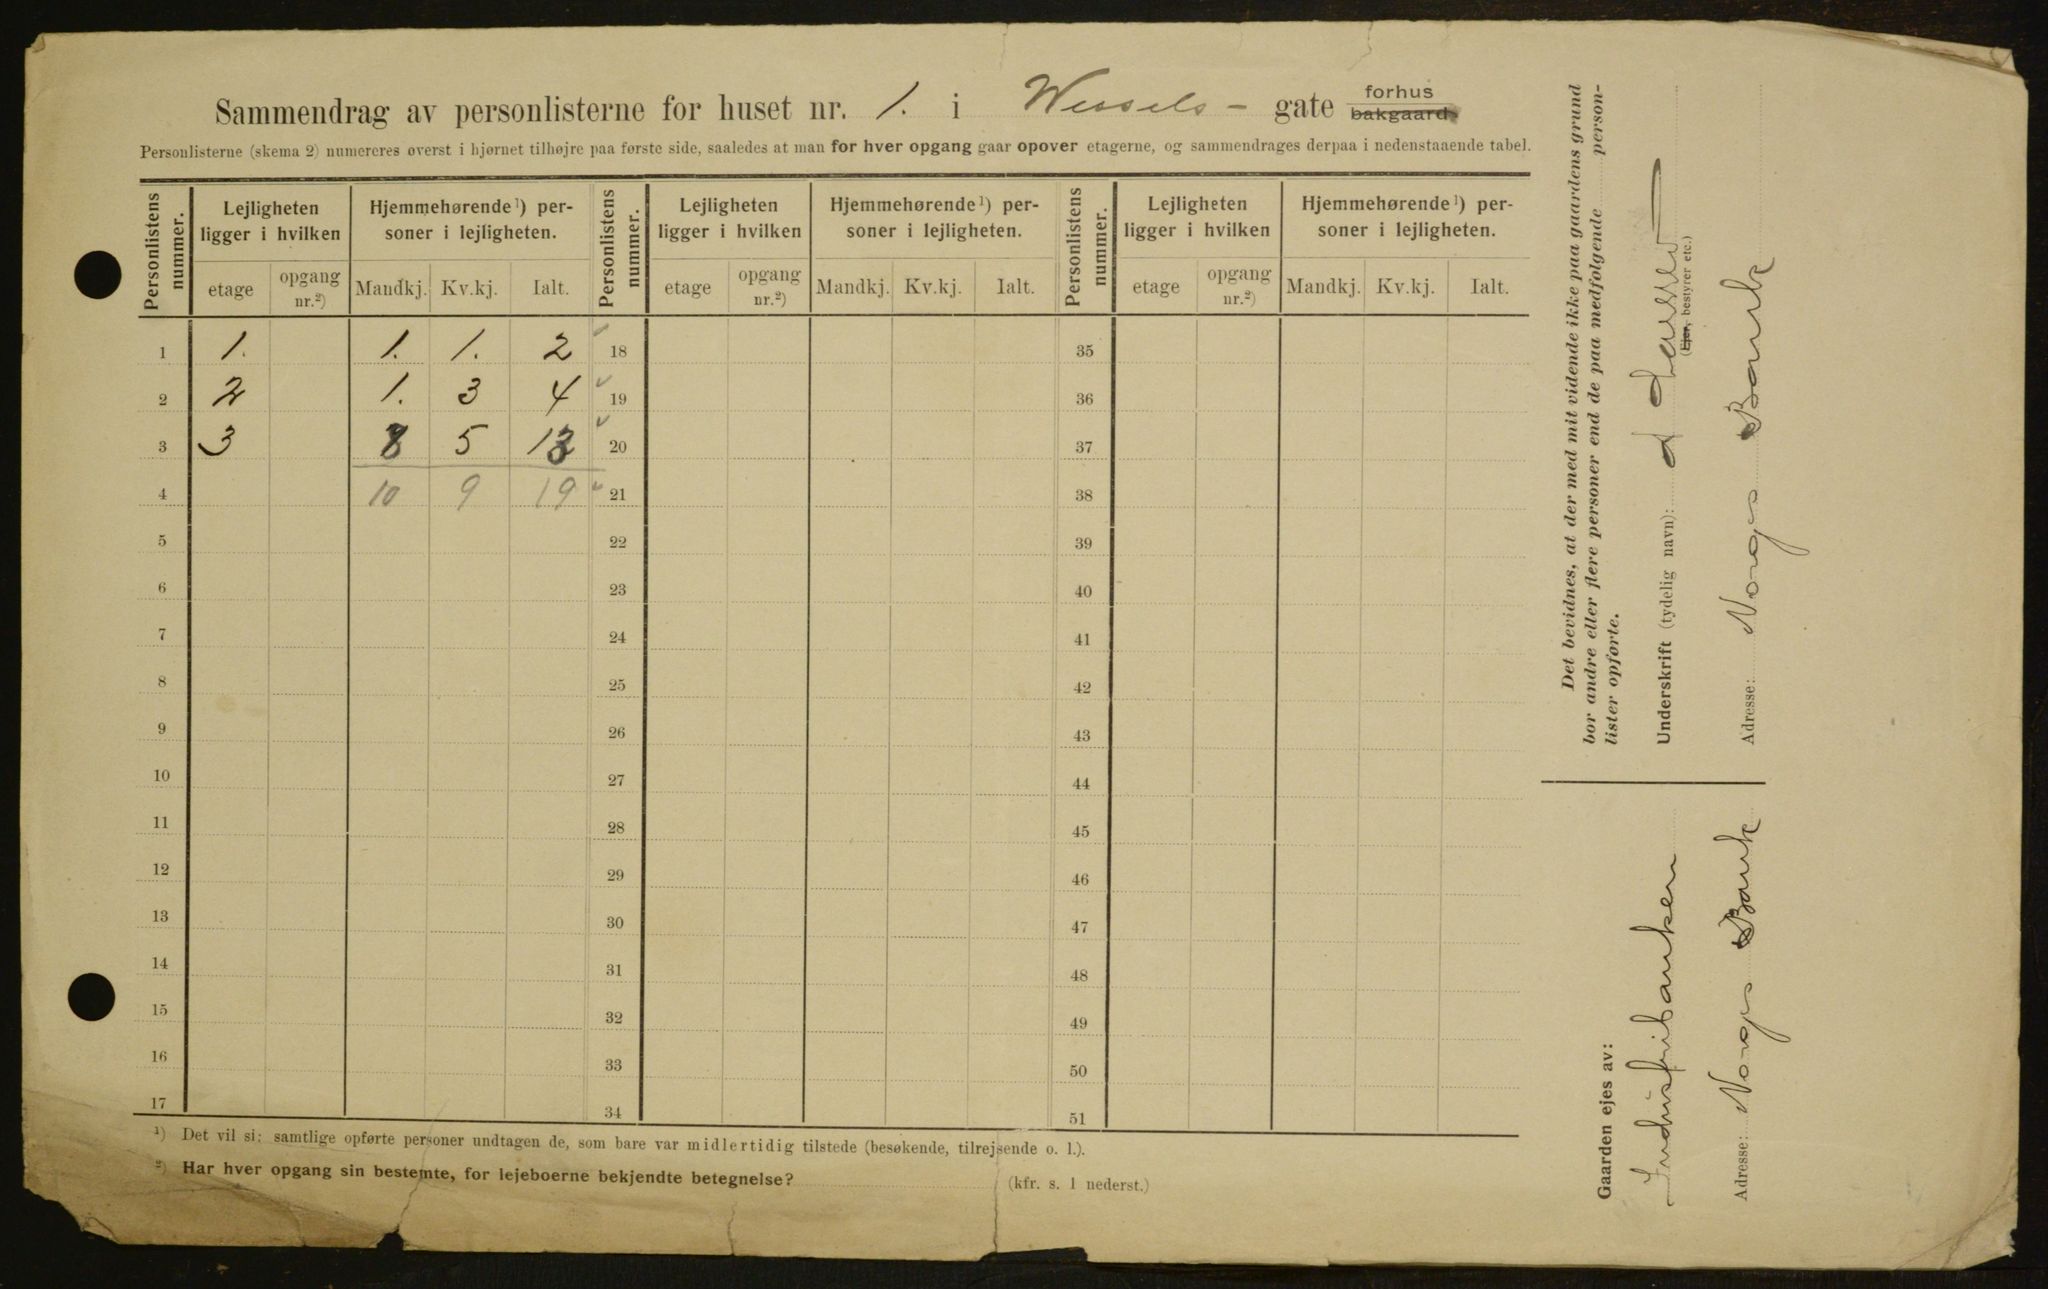 Sammendrag av personlisterne for huset nr. 1. i Wessels- gate forhus bakgaard
Personlisterne (skema 2) numereres øverst i hjørnet tilhøjre paa første side, saaledes at man for hver opgang gaar opover etagerne, og sammendrages derpaa i nedenstaaende tabel.
Personlistens nummer. Lejligheten ligger i hvilken Hjemmehørende¹) personer i lejligheten. Personlistens nummer. Lejligheten ligger i hvilken Hjemmehørende¹) personer i lejligheten. Personlistens nummer. Lejligheten ligger i hvilken Hjemmehørende¹) personer i lejligheten.
etage opgang nr.²) Mandkj. Kv.kj. Ialt. etage opgang nr.²) Mandkj. Kv.kj. Ialt. etage opgang nr.²) Mandkj. Kv.kj. Ialt.
1 1. 1. 1. 2 18 35
2 2 1. 3 4 19 36
3 3 8 5 13 20 37
4 10 9 19 21 38
5 22 39
6 23 40
7 24 41
8 25 42
9 26 43
10 27 44
11 28 45
12 29 46
13 30 47
14 31 48
15 32 49
16 33 50
17 34 51
¹) Det vil si: samtlige opførte personer undtagen de, som bare var midlertidig tilstede (besøkende, tilrejsende o. l.).
²) Har hver opgang sin bestemte, for lejeboerne bekjendte betegnelse? (kfr. s. 1 nederst.)
Det bevidnes, at der med mit vidende ikke paa gaardens grund
bor andre eller flere personer end de paa medfølgende person-
lister opførte.
Underskrift (tydelig navn):
(Ejer, bestyrer etc.)
Adresse: Norges Bank
Gaarden ejes av:
Industribanken
Adresse: Norges Bank